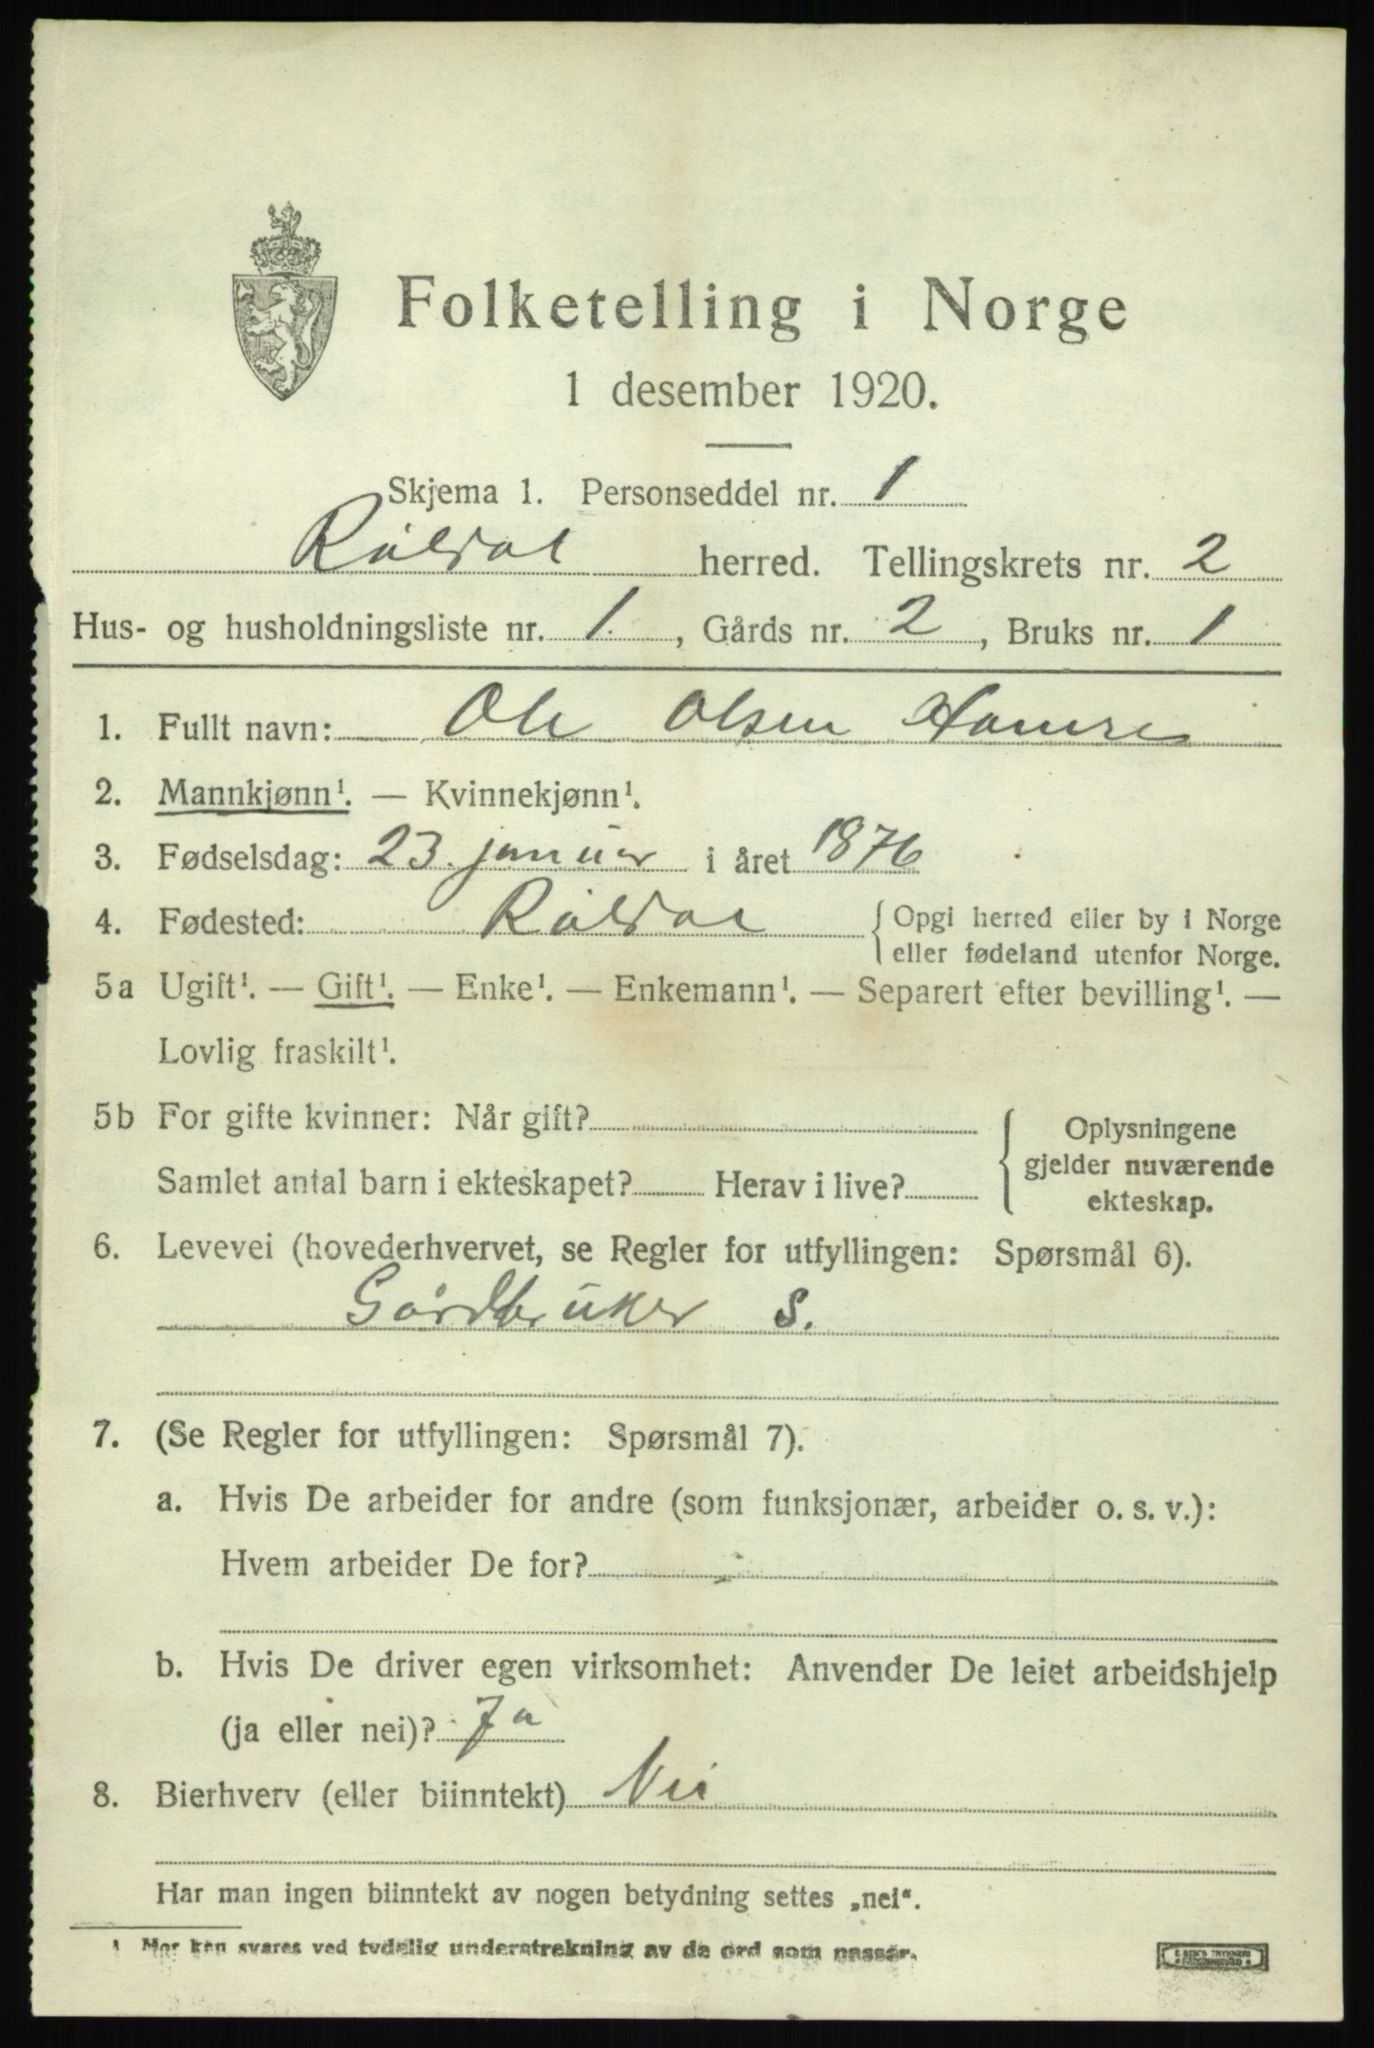 Folketelling i Norge
1 desember 1920.
Skjema 1. Personseddel nr. 1
Røldal herred. Tellingskrets nr. 2
Hus- og husholdningsliste nr. 1., Gårds nr. 2, Bruks nr. 1
1. Fullt navn: Ole Olsen Hamre
2. Mannkjønn¹. — Kvinnekjønn¹.
3. Fødselsdag: 23. januar i året 1876
4. Fødested: Røldal {Opgi herred eller by i Norge
eller fødeland utenfor Norge.
5a Ugift¹. — Gift¹. — Enke¹. — Enkemann¹. — Separert efter bevilling¹. —
Lovlig fraskilt¹.
5b For gifte kvinner: Når gift?
Samlet antal barn i ekteskapet? Herav i live?
Oplysningene
gjelder nuværende
ekteskap.
6. Levevei (hovederhvervet, se Regler for utfyllingen: Spørsmål 6).
Gårdbruker S.
7. (Se Regler for utfyllingen: Spørsmål 7).
a. Hvis De arbeider for andre (som funksjonær, arbeider o. s. v.):
Hvem arbeider De for?
b. Hvis De driver egen virksomhet: Anvender De leiet arbeidshjelp
(ja eller nei)? Ja
8. Bierhverv (eller biinntekt) Nei
Har man ingen biinntekt av nogen betydning settes „nei“.
¹ Mer kan svares ved tydelig understrekning av de ord som passer.